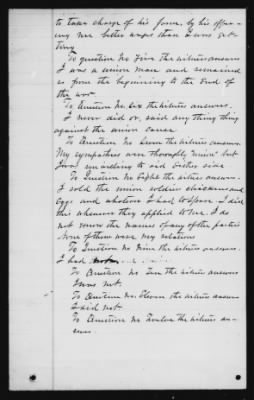 to take charge of his farm, by his offer-
ing me better wages than I was get-
ting
To question No Five the witness answers
I was a union man and remained
so from the beginning to the End of
the war.
To Question No Six the witness answers.
I never did or said any thing thing
against the union cause
To Question No Seven the witness answers
My sympathies were thoroughly union but
I was unwilling to aid Either side
To Question No Eight the witness answers
I sold the union soldiers chickens and
Eggs and whatever I had to spare. I did
this whenever they applied to me. I do
not know the names of any of the parties
None of them were my relatives
To Question No Nine the witness answers.
I had not
To Question No Ten the witness answers
I was not.
To Question No Eleven the witness answers
I did not
To Question No Twelve the witness an-